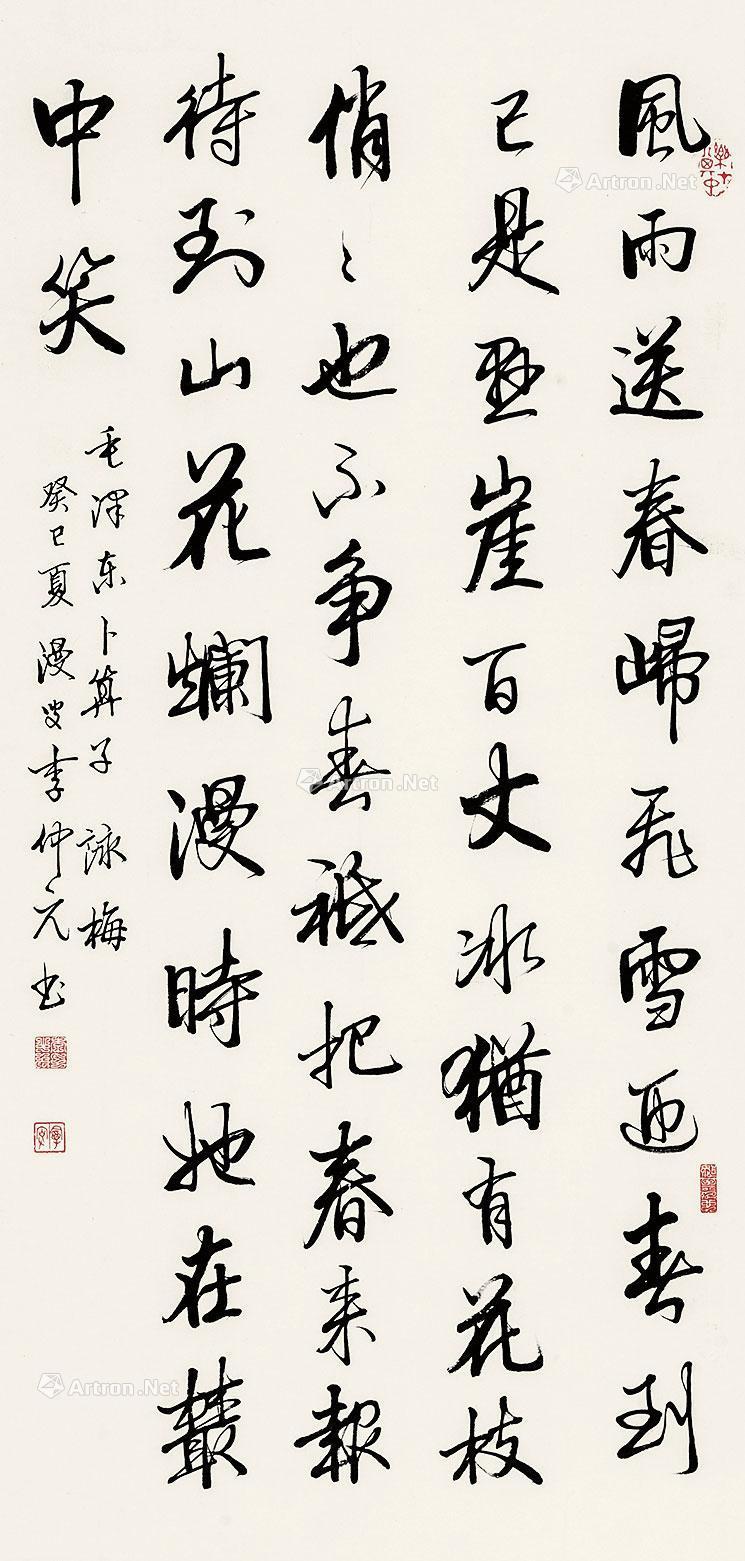 風雨送春歸飛雪迎春到
已是懸崖百丈冰猶有花枝
俏〻也不争春祗把春来報
待到山花爛漫時她在叢
中笑
毛澤东卜算子 詠梅
癸巳夏漫叟李仲元书
Artron.Net
Artron.Net
Artron.Net